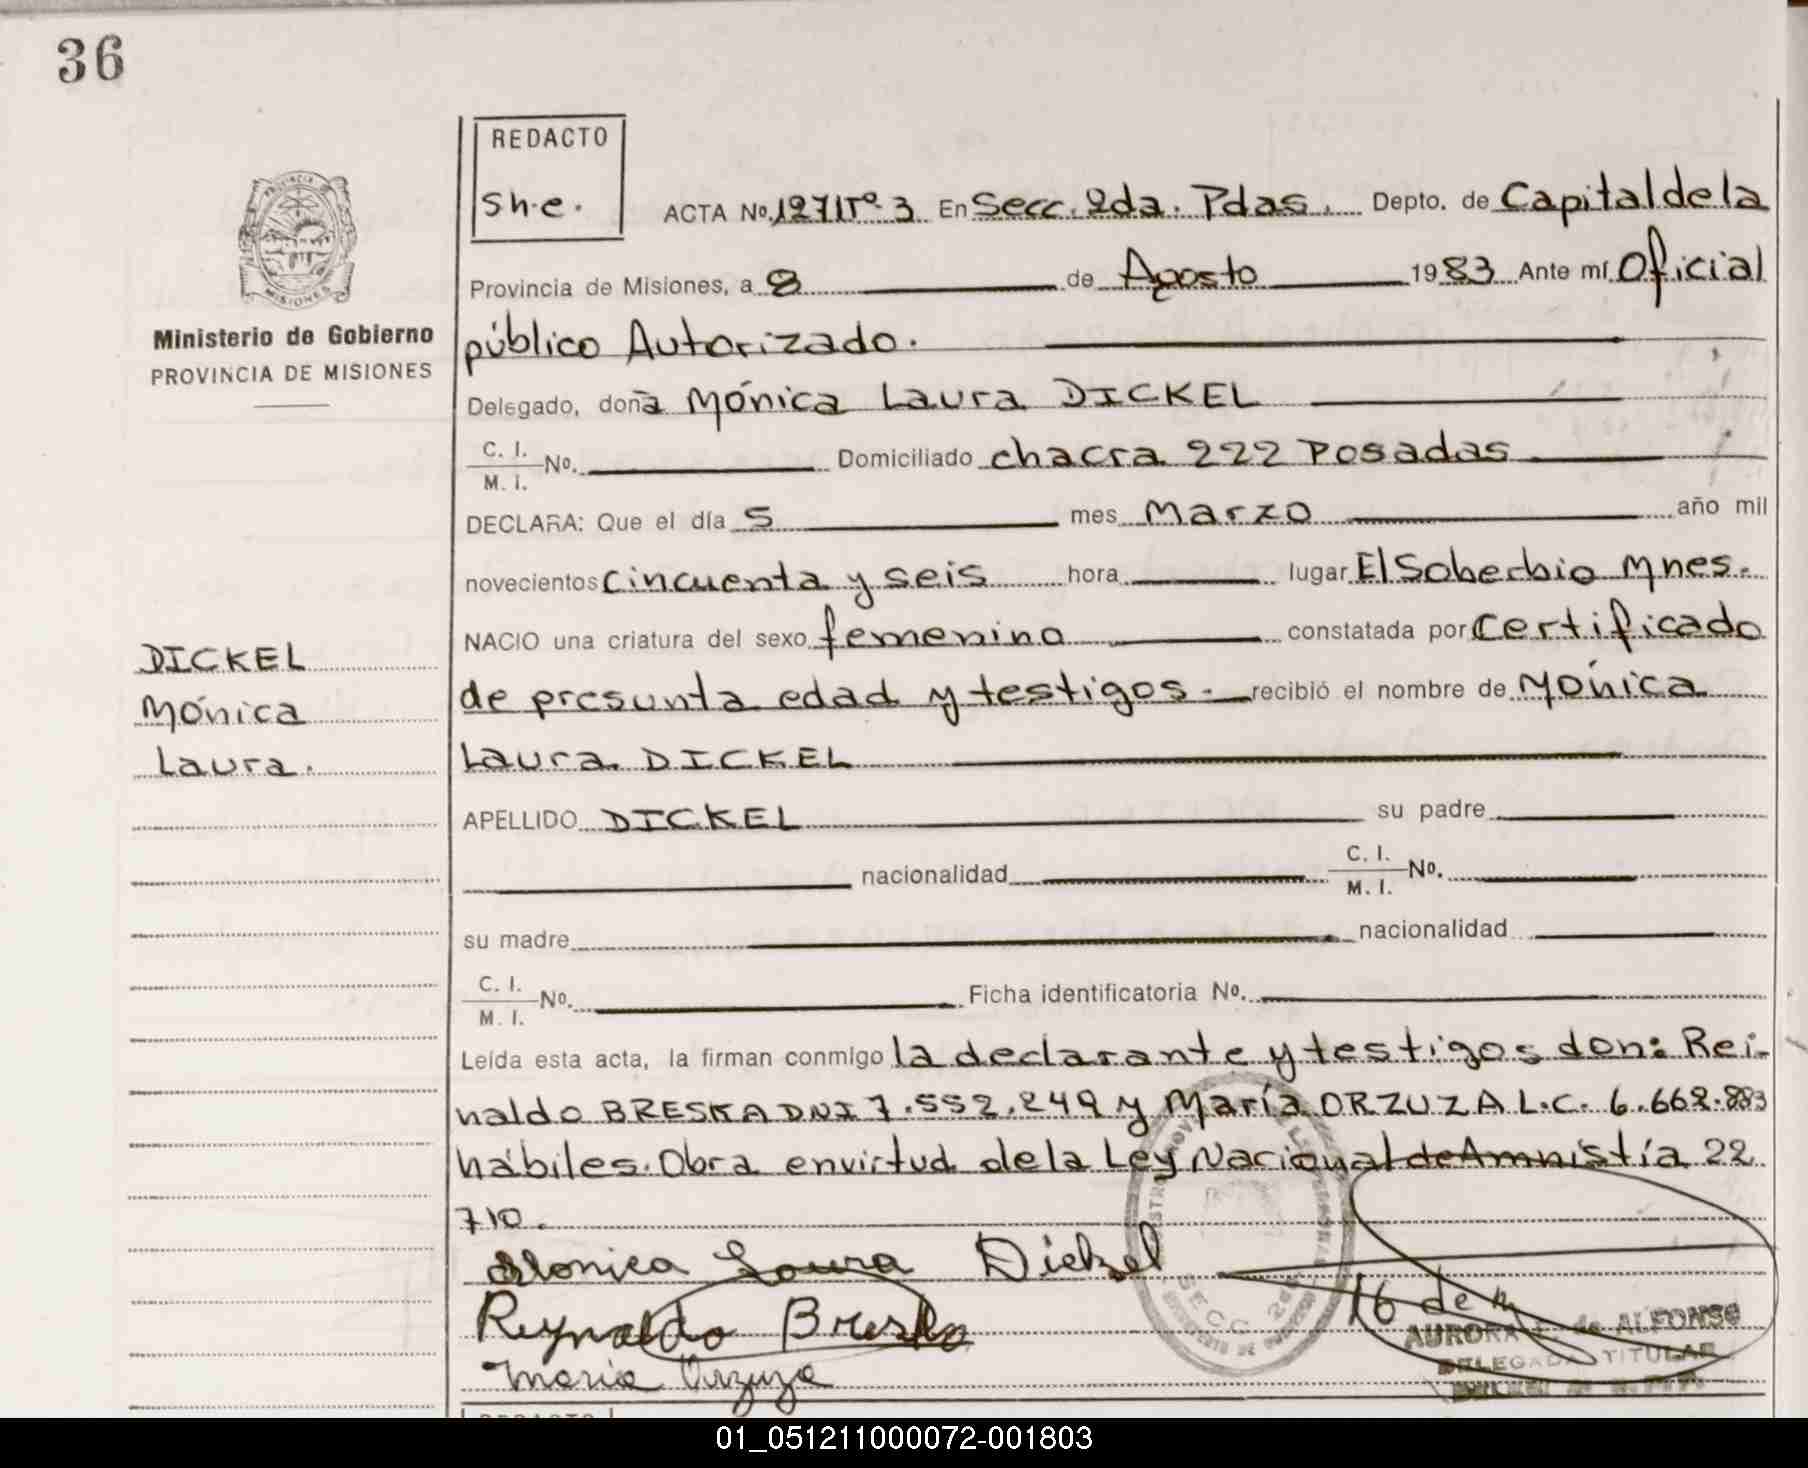 36
REDACTO
Sh.e.
ACTA No. 1271 Tº 3 En Secc. 2da. Pdas. Depto. de Capital de la
Provincia de Misiones, a 8 de Agosto 1983 Ante mí Oficial
público Autorizado.
Ministerio de Gobierno
PROVINCIA DE MISIONES
Delegado, doña Mónica Laura DICKEL
C. I.
M. I. No. Domiciliado chacra 222 Posadas
DECLARA: Que el día 5 mes Marzo año mil
novecientos cincuenta y seis hora lugar El Soberbio Mnes.
NACIO una criatura del sexo femenino constatada por certificado
de presunta edad y testigos. recibió el nombre de Mónica
Laura DICKEL
DICKEL
Mónica
Laura.
APELLIDO DICKEL su padre
nacionalidad C. I.
M. I. No.
su madre nacionalidad
C. I.
M. I. No. Ficha identificatoria No.
Leída esta acta, la firman conmigo la declarante y testigos don: Rei-
naldo BRESKA DNI 7.552.249 y María ORZUZA L.C. 6.662.883
hábiles. Obra envirtud de la Ley Nacional de Amnistía 22
710.
Monica Laura Dickel
Reynaldo Breska
Maria Orzuza
SECC 2da
16 de
AURORA de ALFONSO
DELEGADA TITULAR
REDACTO
01_051211000072-001803